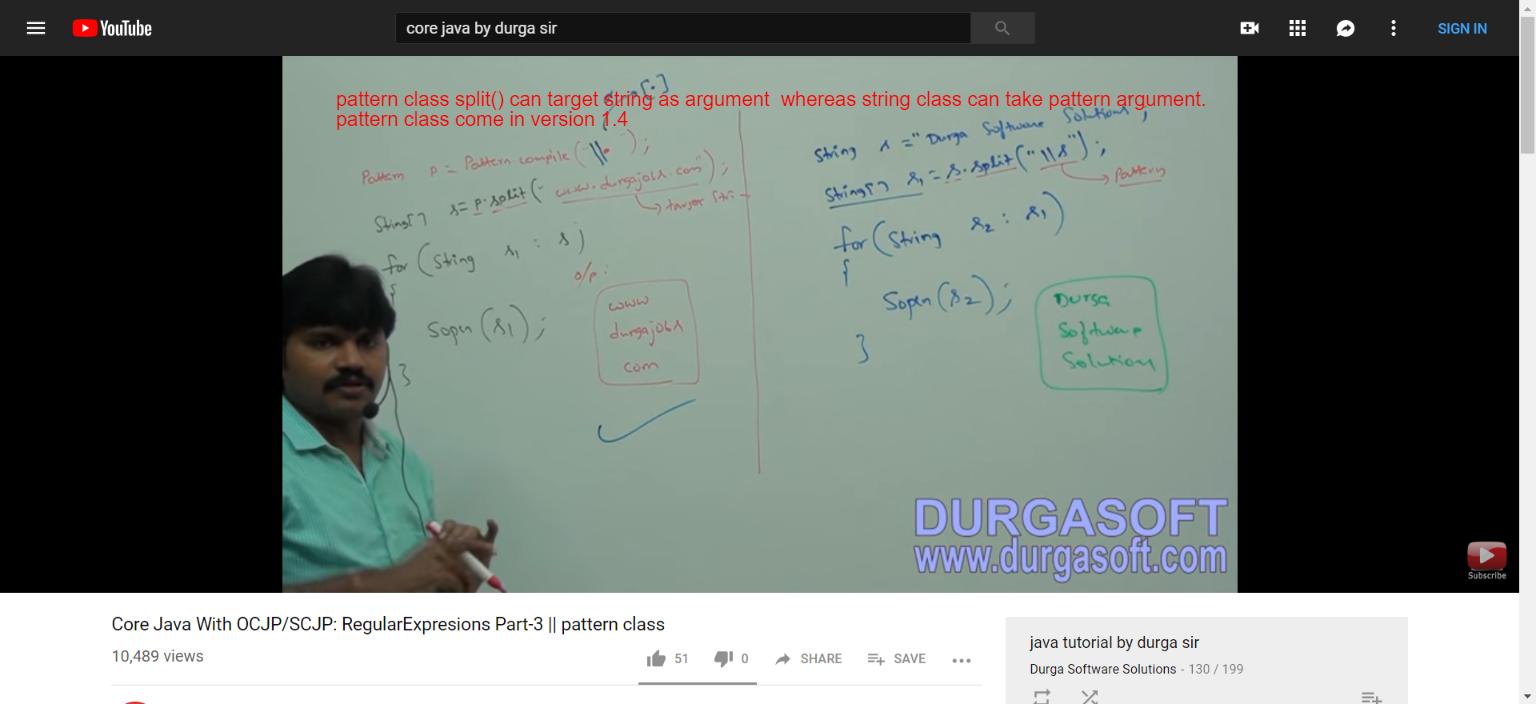 YouTube
core java by durga sir
SIGN IN
pattern class split() can target string as argument whereas string class can take pattern argument.
pattern class come in version 1.4
[.]
Pattern p = Pattern.compile("\\.");
String[] s= p.split("www.durgajobs.com");
target Stri
for (String s1 : s)
{
o/p:
Sopln(s1);
www
durgajobs
com
}
String s ="Durga Software Solutions";
String[] s1 = s.split("\\s");
Pattern
for (String s2 : s1)
{
Sopln(s2);
}
Durga
Software
Solution
DURGASOFT
www.durgasoft.com
Subscribe
Core Java With OCJP/SCJP: RegularExpresions Part-3 || pattern class
10,489 views
51
0
SHARE
SAVE
java tutorial by durga sir
Durga Software Solutions - 130 / 199